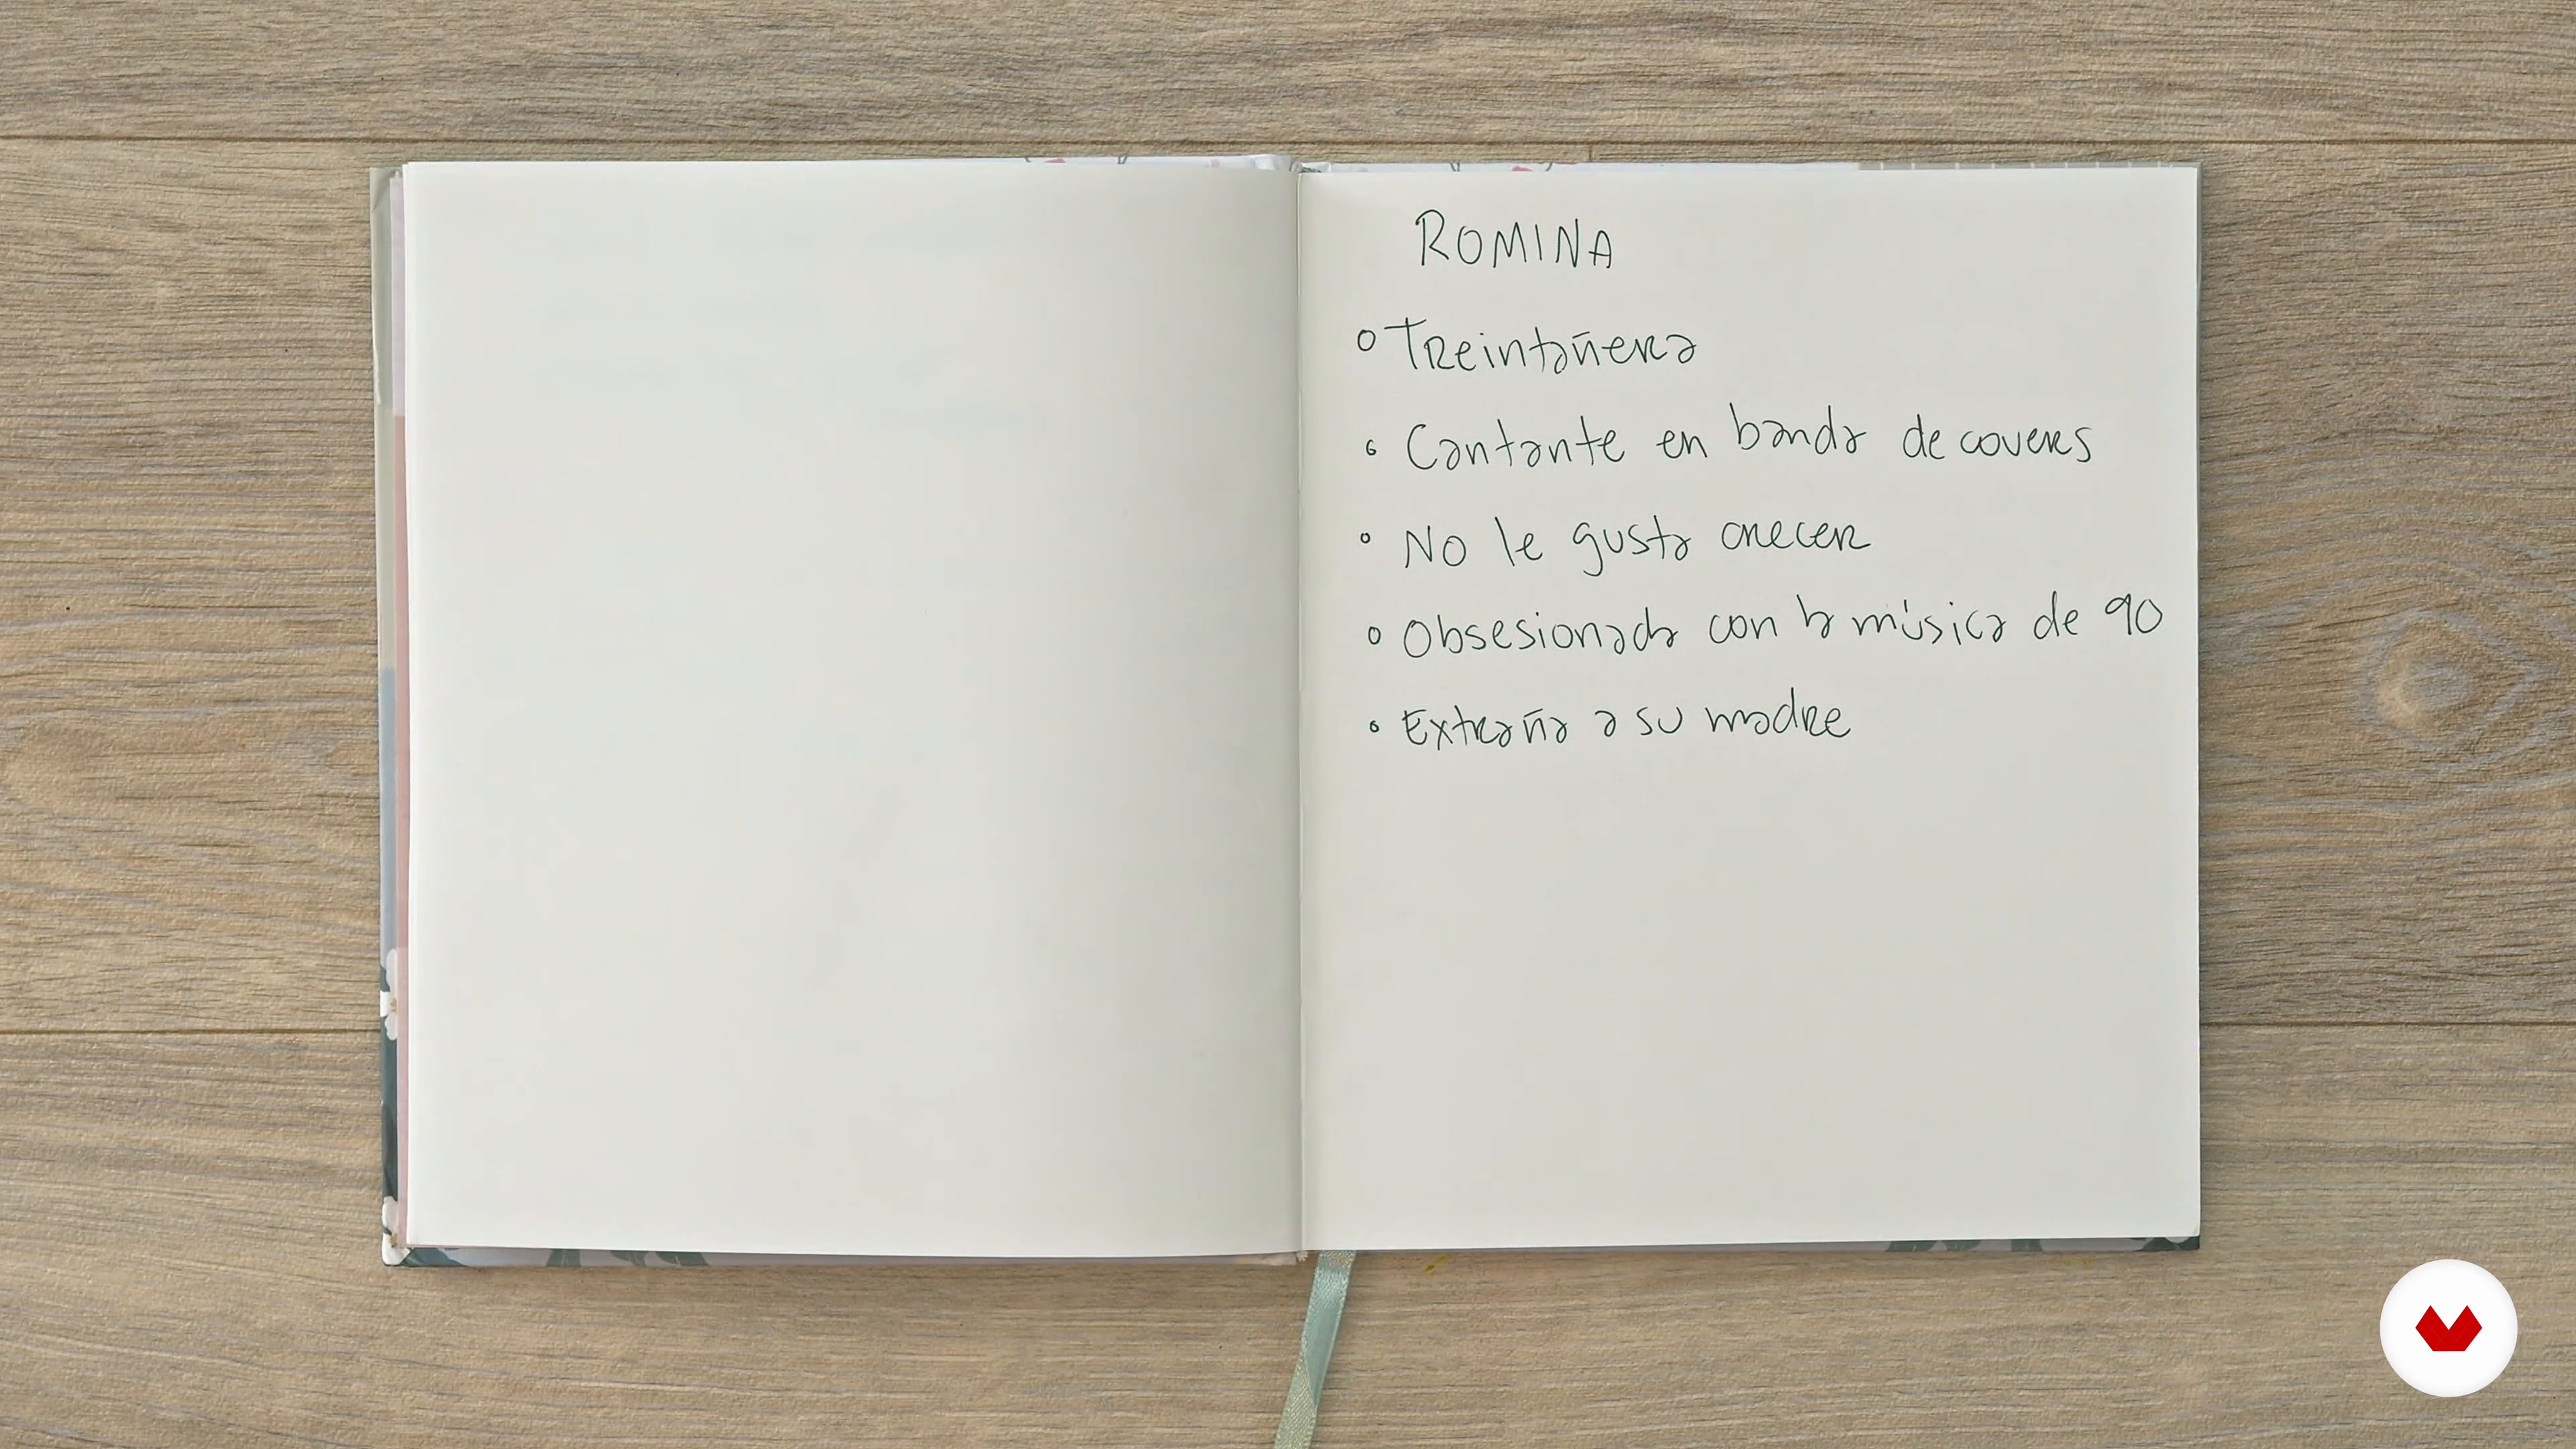 ROMINA
Treintañera
Cantante en banda de covers
No le gusta crecer
Obsesionada con la música de 90
Extraña a su madre